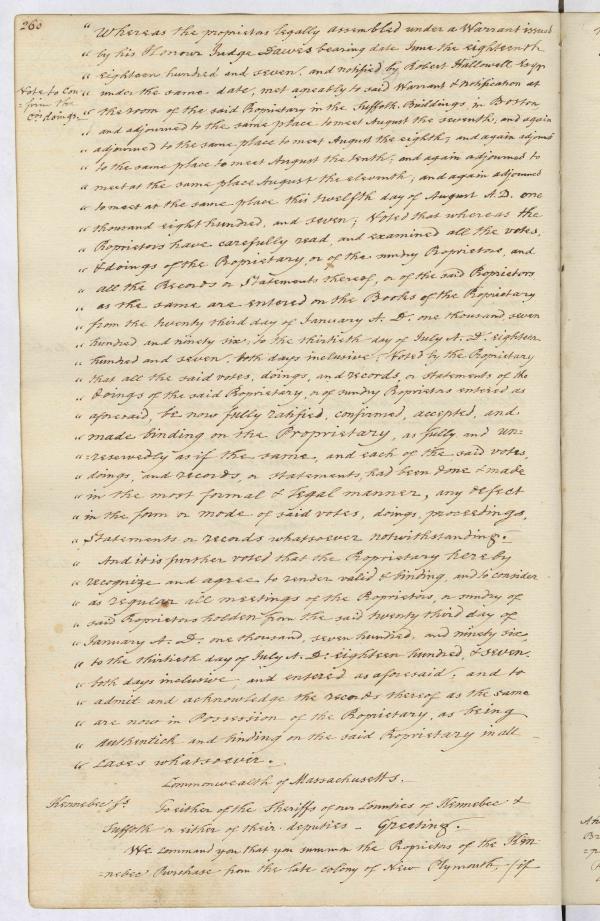 260
" Whereas the proprietors legally assembled under a Warrant issued
" by his Honour Judge Dawes bearing date June the eighteenth
" eighteen hundred and seven, and notified by Robert Hallowell Esqr
Vote to con
=firm the
doings.
" under the same date, met agreably to said Warrant & notification at
" the room of the said Propriety in the Suffolk Buildings, in Boston
" and adjourned to the same place to meet August the seventh, and again
" adjourned to the same place to meet August the eighth, and again adjourned
" to the same place to meet August the tenth, and again adjourned to
" meet at the same place August the eleventh, and again adjourned
" to meet at the same place this twelfth day of August A.D. one
" thousand eight hundred, and seven; Voted that whereas the
" Proprietors have carefully read, and examined all the votes,
" & doings of the Propriety, or of the sundry Proprietors, and
" all the Records or Statements thereof, or of the said Proprietors
" as the same are entered on the Books of the Propriety
" from the twenty third day of January A. D. one thousand seven
" hundred and ninety six, to the thirtieth day of July A. D. eighteen
" hundred and seven, both days inclusive, Voted by the Propriety
" that all the said votes, doings, and records, or statements of the
" doings of the said Propriety, or of sundry Proprietors entered as
" aforesaid, be now fully ratified, confirmed, accepted, and
" made binding on the Propriety, as fully and un=
" =reservedly as if the same, and each of the said votes,
" doings, and records, or statements, had been done & made
" in the most formal & legal manner, any defect
" in the form or mode of said votes, doings, proceedings,
" Statements or records whatsoever notwithstanding.
" And it is further voted that the Propriety hereby
" recognize and agree to render valid & binding, and to consider
" as regular all meetings of the Proprietors, or sundry of
" said Proprietors holden from the said twenty third day of
" January A. D. one thousand, seven hundred and ninety six
" to the thirtieth day of July A. D. eighteen hundred, & seven
" both days inclusive, and entered as aforesaid; and to
" admit and acknowledge the records thereof as the same
" are now in Possession of the Propriety, as being
" authentick and binding on the said Propriety in all
" Cases whatsoever.
Commonwealth of Massachusetts.
Kennebec ss To either of the Sheriffs of our Counties of Kennebec &
Suffolk or either of their deputies - Greeting.
We command you that you summon the Proprietors of the Ken
=nebec Purchase from the late colony of New Plymouth, (if